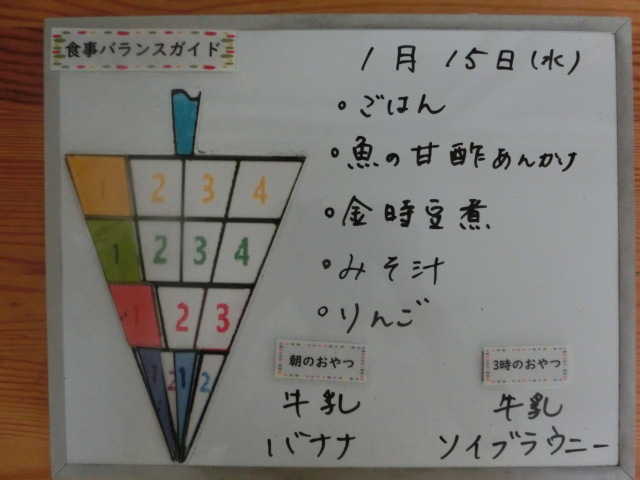 食事バランスガイド
1月15日(水)
・ごはん
・魚の甘酢あんかけ
・金時豆煮
・みそ汁
・りんご
1 2 3 4
1 2 3 4
1 2 3
1 2 1 2
朝のおやつ
牛乳
バナナ
3時のおやつ
牛乳
ソイブラウニー